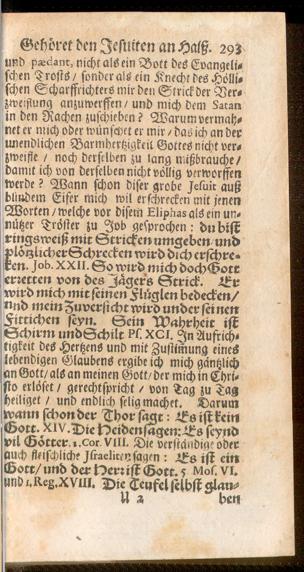 Gehöret den Jesuiten an Halß. 293
und pædant, nicht als ein Bott des Evangeli-
schen Trosts / sonder als ein Knecht des Hölli-
schen Scharffrichters mir den Strick der Ver-
zweiflung anzuwerffen / und mich dem Satan
in den Rachen zuschieben? Warum vermah-
net er mich oder wünschet er mir / das ich an der
unendlichen Barmhertzigkeit Gottes nicht ver-
zweifle / noch derselben zu lang mißbrauche /
damit ich von derselben nicht völlig verworffen
werde? Wann schon diser grobe Jesuit auß
blindem Eifer mich wil erschrecken mit jenen
Worten / welche vor disem Eliphas als ein un-
nützer Tröster zu Job gesprochen: du bist
ringsweiß mit Stricken umgeben und
plötzlicher Schrecken wird dich erschre-
ken. Job. XXII. So wird mich doch Gott
erretten von des Jägers Strick. Er
wird mich mit seinen Flüglen bedecken /
und mein Zuversicht wird under seinen
Fittichen seyn. Sein Wahrheit ist
Schirm und Schilt Ps. XCI. In Aufrich-
tigkeit des Hertzens und mit Zustimung eines
lebendigen Glaubens ergibe ich mich gäntzlich
an Gott / als an meinen Gott / der mich in Chri-
sto erlöset / gerechtspricht / von Tag zu Tag
heiliget / und endlich selig machet. Darum
wann schon der Thor sagt: Es ist kein
Gott. XIV. Die Heiden sagen: Es seynd
vil Götter. 1. Cor. VIII. Die verständige oder
auch fleischliche Israeliten sagen: Es ist ein
Gott / und der Herr ist Gott. 5 Mos. VI.
und 1. Reg. XVIII. Die Teufel selbst glau-
U 2 ben